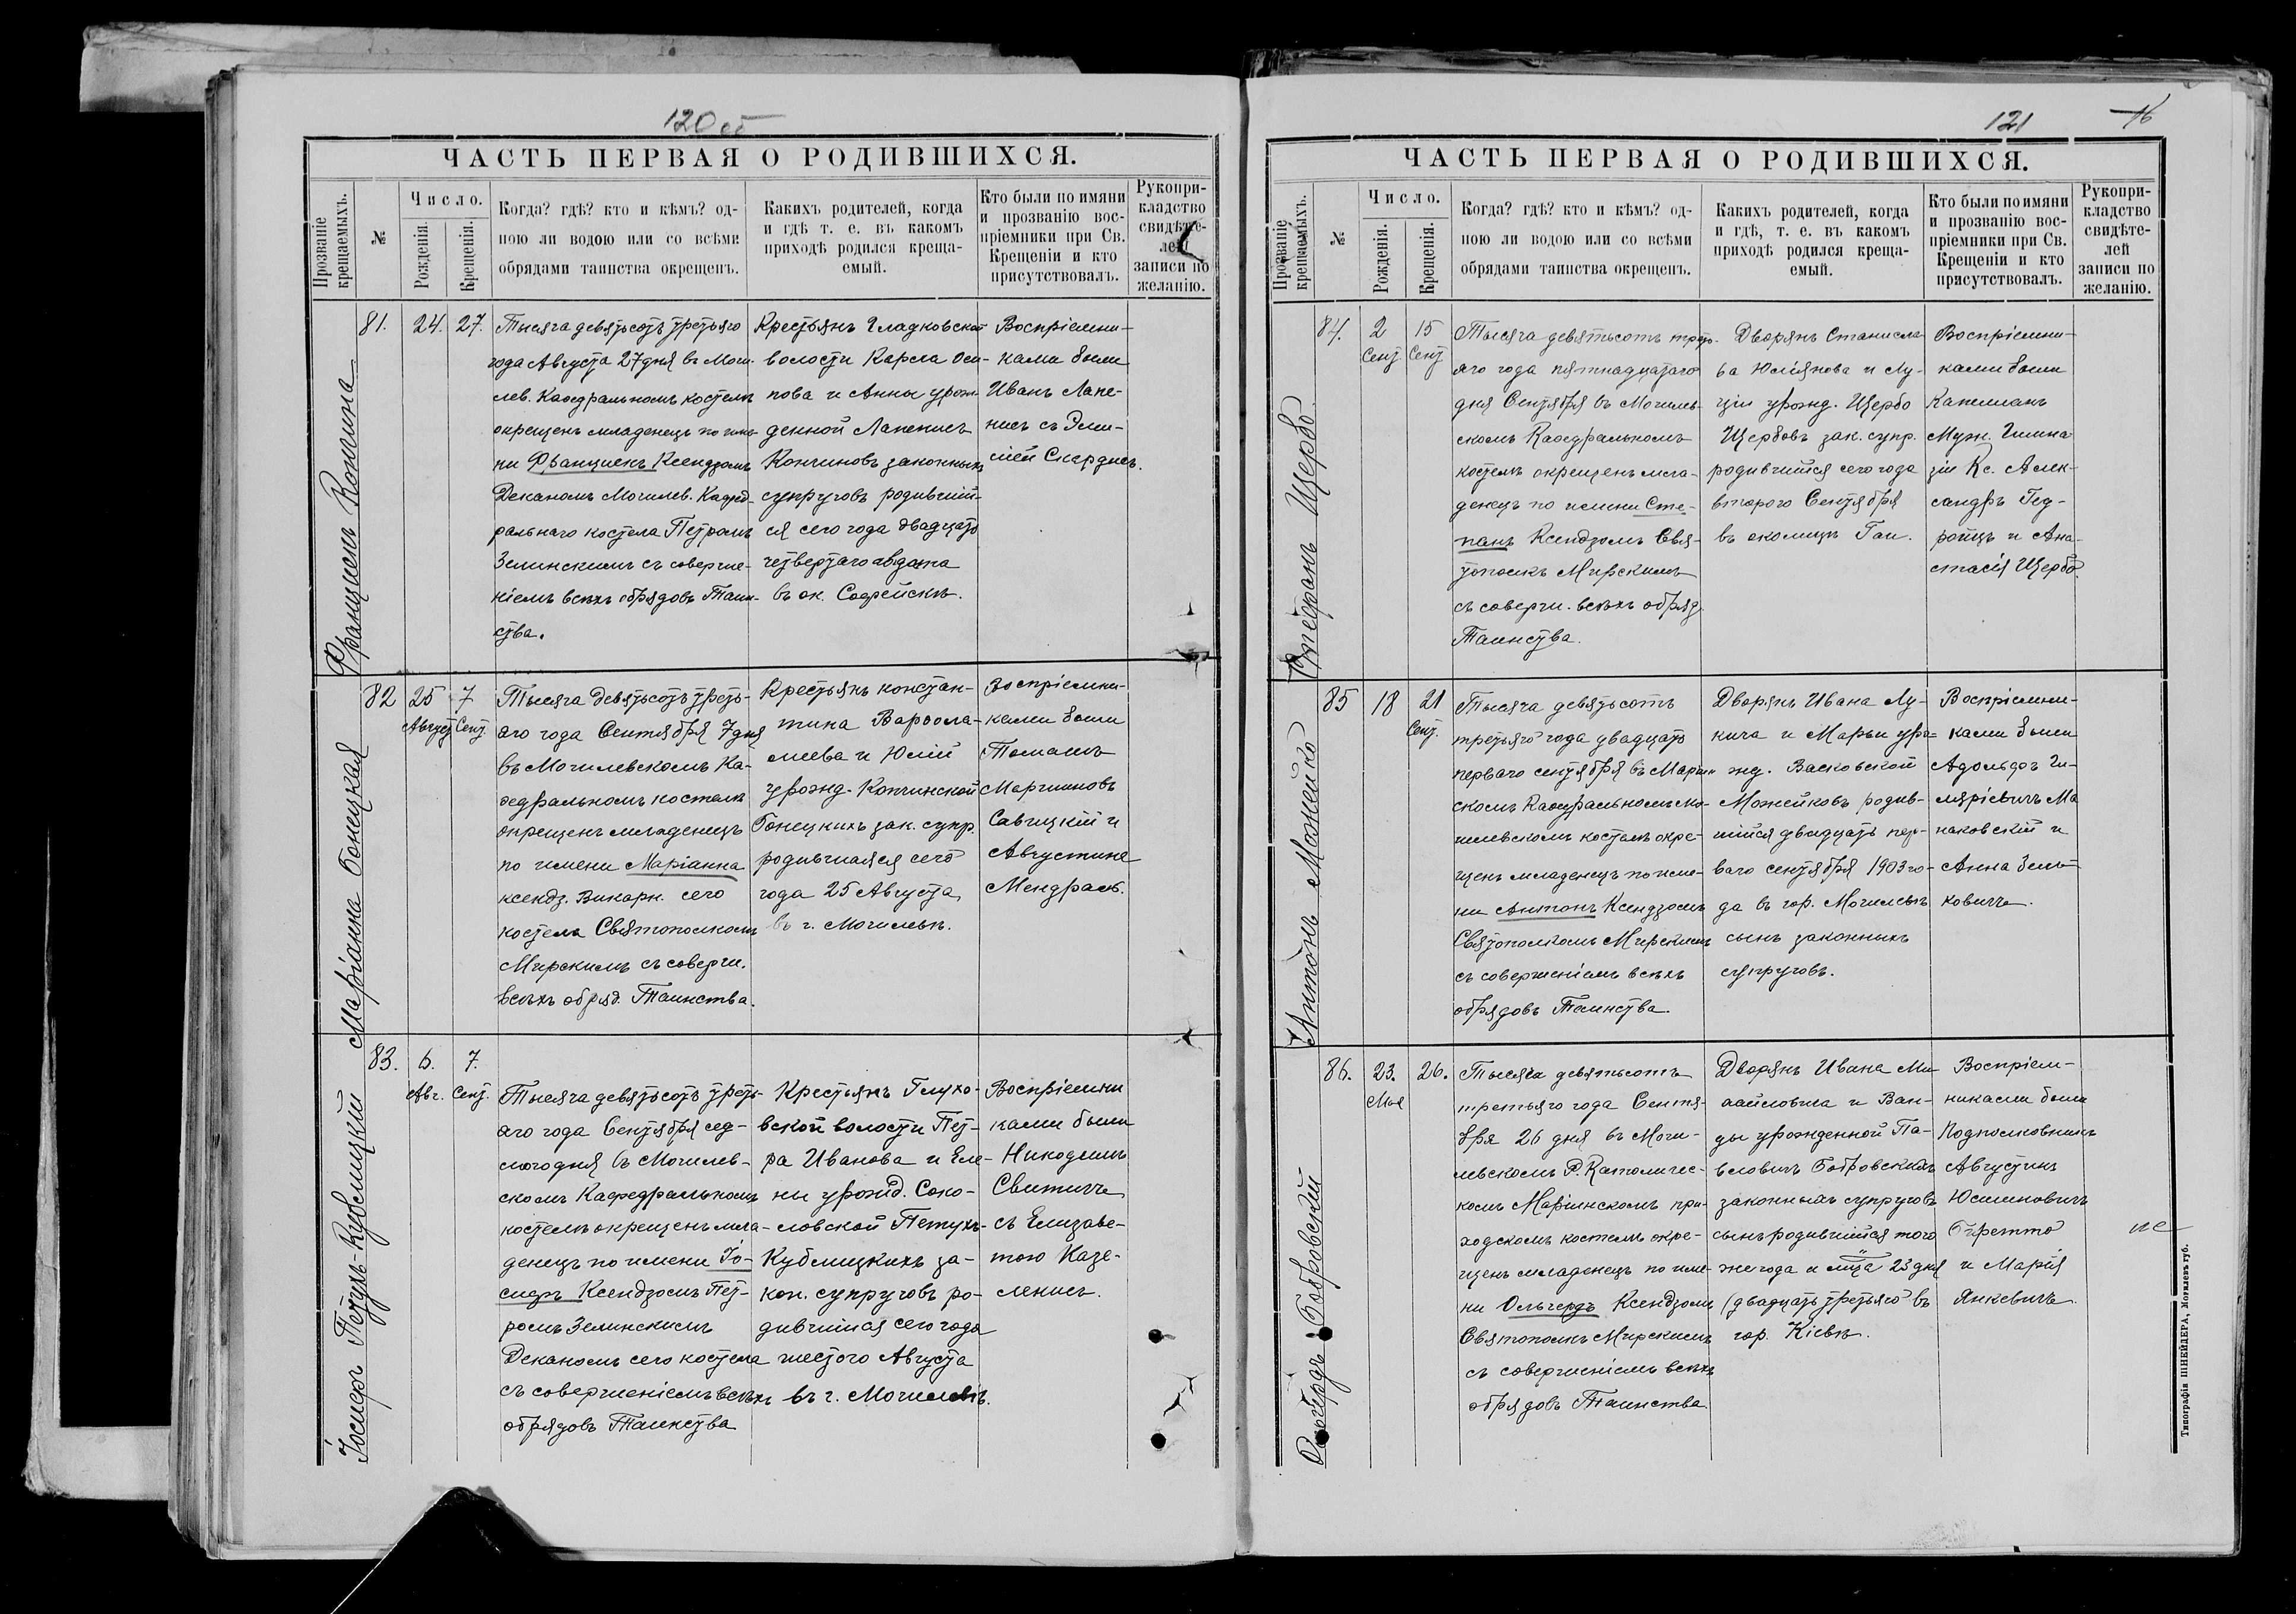 120 об
ЧАСТЬ ПЕРВАЯ О РОДИВШИХСЯ.
Прозваніе крещаемыхъ.
№
Число.
Рожденія.
Крещенія.
Когда? гдѣ? кто и кѣмъ? од-
ною ли водою или со всѣми
обрядами таинства окрещенъ.
Какихъ родителей, когда
и гдѣ т. е. въ какомъ
приходѣ родился креща-
емый.
Кто были по имяни
и прозванію вос-
пріемники при Св.
Крещеніи и кто
присутствовалъ.
Рукопри-
кладство
свидѣте-
лей
записи по
желанію.
Францискъ Кончина
81.
24.
27.
Тысяча девятьсотъ третьяго
года Августа 27 дня въ Моги-
лев. Каѳедральномъ костелѣ
окрещенъ младенецъ по име-
ни Францискъ Ксендзомъ
Деканомъ Могилев. Каѳед-
ральнаго костела Петромъ
Зелинскимъ съ соверше-
ніемъ всѣхъ обрядовъ Таин-
ства.
Крестьянъ Гладковской
волости Карла Оси-
пова и Анны урож-
денной Лапенисъ
Кончиновъ законныхъ
супруговъ родившій-
ся сего года двадцать
четвертаго августа
въ ок. Софейскѣ.
Воспріемни-
ками были
Иванъ Лапе-
нисъ съ Эми-
ліей Скардисъ.
Маріанна Бонецкая
82
25 Август
7 Сент.
Тысяча девятьсотъ треть-
яго года Сентября 7 дня
въ Могилевскомъ Ка-
ѳедральномъ костелѣ
окрещенъ младенецъ
по имени Маріанна
ксендз. Викарн. сего
костела Святополкомъ
Мирскимъ съ соверш.
всѣхъ обряд. Таинства.
Крестьянъ констан-
тина Варѳола-
меева и Юліи
урожд. Копчинской
Бонецкихъ зак. супр.
родившаяся сего
года 25 Августа,
въ г. Могилевѣ.
Воспріемни-
ками были
Томашъ
Мартиновъ
Савицкій и
Августина
Мендраль.
Іосифъ Петухъ-Кублицкій
83.
6. Авг.
7. Сент.
Тысяча девятьсотъ треть-
яго года Сентября сед-
мого дня въ Могилев-
скомъ Кафедральномъ
костелѣ окрещенъ мла-
денецъ по имени Іо-
сифъ Ксендзомъ Пет-
ромъ Зелинскимъ
Деканомъ сего костела
съ совершеніемъ всѣхъ
обрядовъ Таинства
Крестьянъ Глухо-
вской волости Пет-
ра Иванова и Еле-
ны урожд. Соко-
ловской Петухъ-
Кублицкихъ за-
кон. супруговъ ро-
дившійся сего года
шестого Августа
въ г. Могилевѣ.
Воспріемни
ками были
Никодимъ
Свитичъ
съ Елизаве-
тою Казе-
ленисъ.
121
16
ЧАСТЬ ПЕРВАЯ О РОДИВШИХСЯ.
Прозваніе крещаемыхъ.
№
Число.
Рожденія.
Крещенія.
Когда? гдѣ? кто и кѣмъ? од-
ною ли водою или со всѣми
обрядами таинства окрещенъ.
Какихъ родителей, когда
и гдѣ, т. е. въ какомъ
приходѣ родился креща-
емый.
Кто были по имяни
и прозванію вос-
пріемники при Св.
Крещеніи и кто
присутствовалъ.
Рукопри-
кладство
свидѣте-
лей
записи по
желанію.
Стефанъ Щербо
84.
2 Сент
15 Сент
Тысяча девятьсотъ треть-
яго года пятнадцатаго
дня Сентября въ Могилев-
скомъ Каѳедральномъ
костелѣ окрещенъ мла-
денецъ по имени Сте-
панъ Ксендзомъ Свя-
тополкъ Мирскимъ
съ соверш. всѣхъ обряд
Таинства.
Дворянъ Станисла-
ва Юліянова и Лу-
ціи урожд. Щербо
Щербовъ зак. супр.
родившійся сего года
второго Сентября
въ околицѣ Гаи.
Воспріемни-
ками были
Капелланъ
Муж. Гимна
зіи Кс. Алек-
сандръ Гед-
ройцъ и Ана-
стасія Щербо.
Антонъ Можейко
85
18
21 Сент.
Тысяча девятьсотъ
третьяго года двадцать
перваго сентября въ Маріин
скомъ Каѳедральномъ Мо-
гилевскомъ костелѣ окре-
щенъ младенецъ по име-
ни Антонъ Ксендзомъ
Святополкомъ Мирскимъ
съ совершеніемъ всѣхъ
обрядовъ Таинства.
Дворянъ Ивана Лу-
кича и Марьи уро-
жд. Васковской
Можейковъ родив-
шійся двадцать пер-
ваго сентября 1903 го-
да въ гор. Могилевѣ
сынъ законныхъ
супруговъ.
Воспріемни-
ками были
Адольфъ Ги-
ляріевичъ Ма
наковскій и
Анна Зень-
ковичъ.
Ольгердъ Бобровскій
86.
23. Мая
26.
Тысяча девятьсотъ
третьяго года Сентя-
бря 26 дня въ Моги-
левскомъ Р. Католичес-
комъ Маріинскомъ при-
ходскомъ костелѣ окре-
щенъ младенецъ по име-
ни Ольгердъ Ксендзомъ
Святополкъ Мирскимъ
съ совершеніемъ всѣхъ
обрядовъ Таинства
Дворянъ Ивана Ми-
хайловича и Ван-
ды урожденной Па-
вловичъ Бобровскихъ
законныхъ супруговъ
сынъ родившійся того
же года и мца 23 дня
(двадцать третьяго въ
гор. Кіевѣ.
Воспріем-
никами были
Подполковникъ
Августинъ
Юліиновичъ
Биретто
и Марія
Янкевичъ.
не
Типографія ШНЕЙДЕРА, Могилевъ губ.